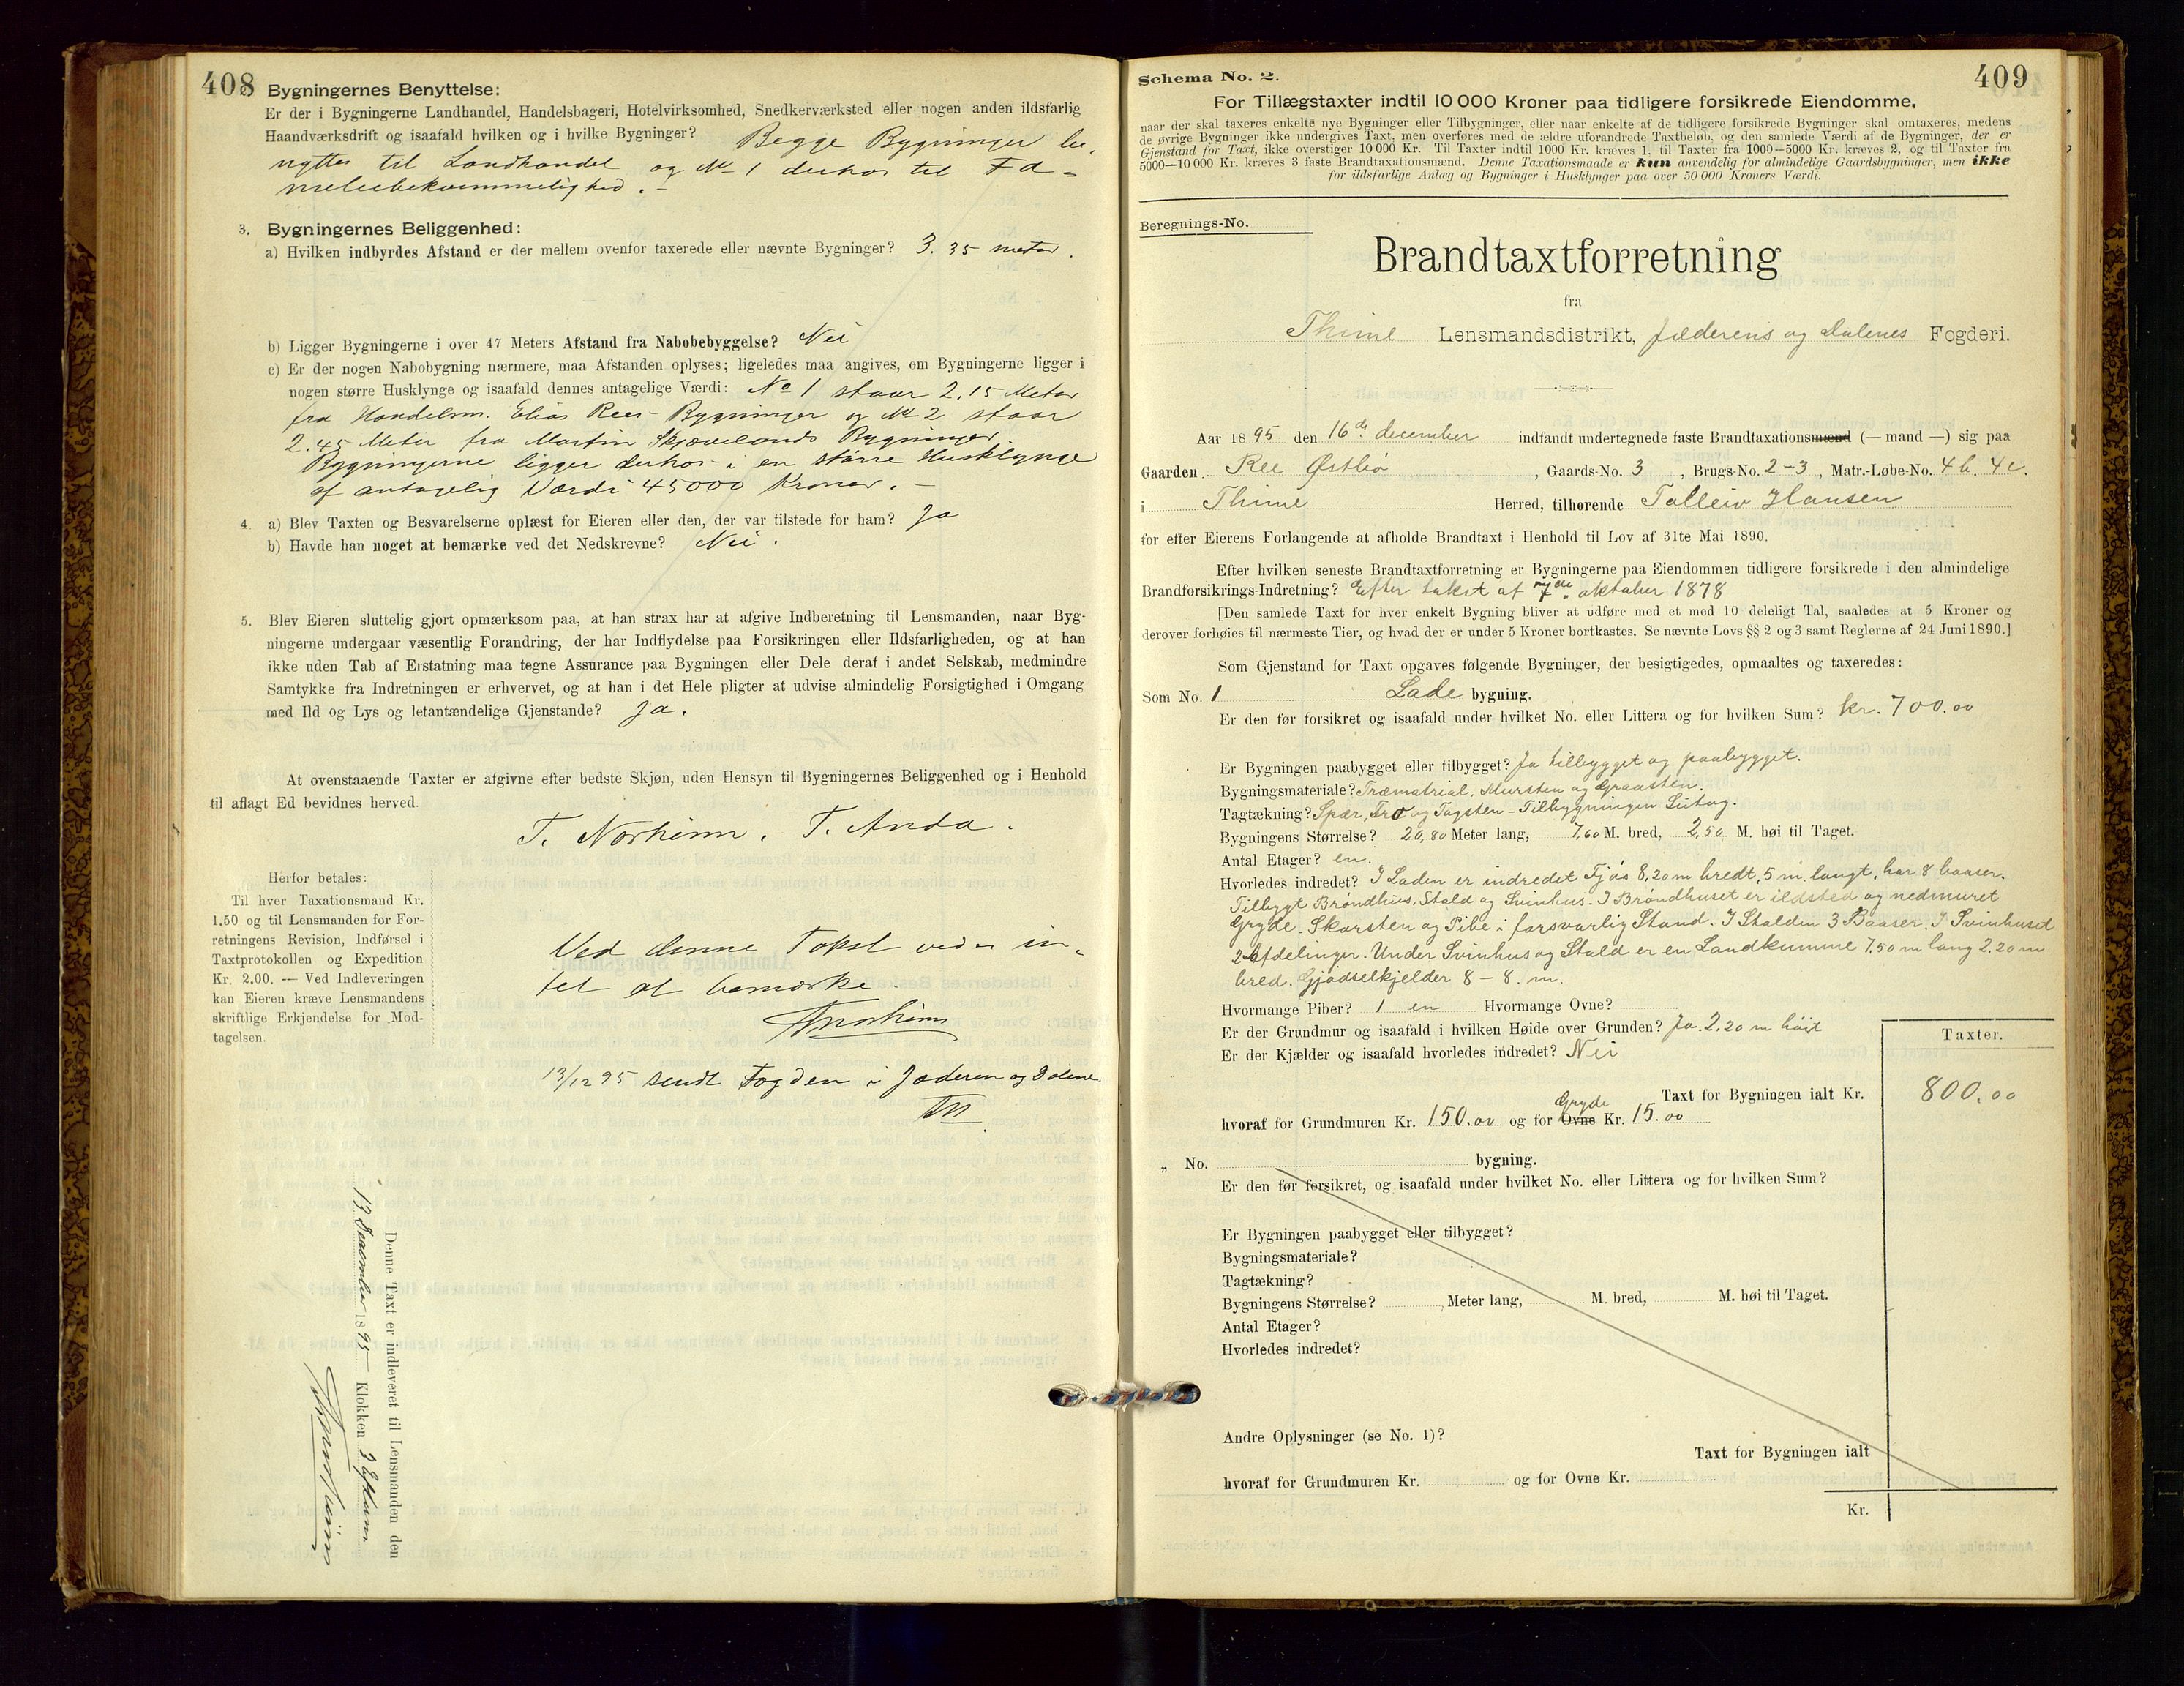 408
Bygningernes Benyttelse:
Er der i Bygningerne Landhandel, Handelsbageri, Hotelvirksomhed, Snedkerværksted eller nogen anden ildsfarlig
Haandværksdrift og isaafald hvilken og i hvilke Bygninger? Begge Bygninger be-
nyttes til Landhandel og No 1 derhos til Fa-
meliebekvemmelighed.-
3. Bygningernes Beliggenhed:
a) Hvilken indbyrdes Afstand er der mellem ovenfor taxerede eller nævnte Bygninger? 3.35 meter.
b) Ligger Bygningerne i over 47 Meters Afstand fra Nabobebyggelse? Nei
c) Er der nogen Nabobygning nærmere, maa Afstanden oplyses; ligeledes maa angives, om Bygningerne ligger i
nogen større Husklynge og isaafald dennes antagelige Værdi: No 1 staar 2.15 Meter
fra Handelsm. Elias Rees Bygninger og No 2 staar
2.45 Meter fra Martin Skjævelands Bygninger.
Bygningerne ligger derhos i en større Husklynge
af antagelig Værdi 45000 Kroner. -
4. a) Blev Taxten og Besvarelserne oplæst for Eieren eller den, der var tilstede for ham? Ja
b) Havde han noget at bemærke ved det Nedskrevne? Nei.
5. Blev Eieren sluttelig gjort opmærksom paa, at han strax har at afgive Indberetning til Lensmanden, naar Byg-
ningerne undergaar væsentlig Forandring, der har Indflydelse paa Forsikringen eller Ildsfarligheden, og at han
ikke uden Tab af Erstatning maa tegne Assurance paa Bygningen eller Dele deraf i andet Selskab, medmindre
Samtykke fra Indretningen er erhvervet, og at han i det Hele pligter at udvise almindelig Forsigtighed i Omgang
med Ild og Lys og letantændelige Gjenstande? Ja.
At ovenstaaende Taxter er afgivne efter bedste Skjøn, uden Hensyn til Bygningernes Beliggenhed og i Henhold
til aflagt Ed bevidnes herved.
T. Norheim. T. Anda.
Herfor betales:
Til hver Taxationsmand Kr.
1.50 og til Lensmanden for For-
retningens Revision, Indførsel i
Taxtprotokollen og Expedition
Kr. 2.00. — Ved Indleveringen
kan Eieren kræve Lensmandens
skriftlige Erkjendelse for Mod-
tagelsen.
Ved denne Takst vides in-
tet at bemærke
TNorheim
13/12 95 sendt Fogden i Jæderen og Dalene.
TN
Denne Taxt er indleveret til Lensmanden den
13 December 1895 Klokken 3 Efterm
TNorheim
Schema No. 2.
409
For Tillægstaxter indtil 10 000 Kroner paa tidligere forsikrede Eiendomme,
naar der skal taxeres enkelte nye Bygninger eller Tilbygninger, eller naar enkelte af de tidligere forsikrede Bygninger skal omtaxeres, medens
de øvrige Bygninger ikke undergives Taxt, men overføres med de ældre uforandrede Taxtbeløb, og den samlede Værdi af de Bygninger, der er
Gjenstand for Taxt, ikke overstiger 10 000 Kr. Til Taxter indtil 1000 Kr. kræves 1, til Taxter fra 1000—5000 Kr. kræves 2, og til Taxter fra
5000—10 000 Kr. kræves 3 faste Brandtaxationsmænd. Denne Taxationsmaade er kun anvendelig for almindelige Gaardsbygninger, men ikke
for ildsfarlige Anlæg og Bygninger i Husklynger paa over 50 000 Kroners Værdi.
Beregnings-No.
Brandtaxtforretning
fra
Thime Lensmandsdistrikt, Jæderens og Dalenes Fogderi.
Aar 1895 den 16de december indfandt undertegnede faste Brandtaxationsmænd (— mand —) sig paa
Gaarden Ree Østbø, Gaards-No. 3, Brugs-No. 2-3, Matr.-Løbe-No. 4b. 4c.
i Thime Herred, tilhørende Tolleiv Hansen
for efter Eierens Forlangende at afholde Brandtaxt i Henhold til Lov af 31te Mai 1890.
Efter hvilken seneste Brandtaxtforretning er Bygningerne paa Eiendommen tidligere forsikrede i den almindelige
Brandforsikrings-Indretning? Efter takst af 7de oktober 1878
[Den samlede Taxt for hver enkelt Bygning bliver at udføre med et med 10 deleligt Tal, saaledes at 5 Kroner og
derover forhøies til nærmeste Tier, og hvad der er under 5 Kroner bortkastes. Se nævnte Lovs §§ 2 og 3 samt Reglerne af 24 Juni 1890.]
Som Gjenstand for Taxt opgaves følgende Bygninger, der besigtigedes, opmaaltes og taxeredes:
Som No. 1 Lade bygning.
Er den før forsikret og isaafald under hvilket No. eller Littera og for hvilken Sum? kr. 700.00
Er Bygningen paabygget eller tilbygget? Ja tilbygget og paabygget.
Bygningsmateriale? Træmatrial, Mursten og Graasten.
Tagtækning? Spær, Tro og Tagsten - Tilbygningen Lutag.
Bygningens Størrelse? 20,80 Meter lang, 7,60 M. bred, 2,50 M. høi til Taget.
Antal Etager? en.
Hvorledes indredet? I Laden er indredet Fjøs 8,20 m bredt, 5 m langt, har 8 baaser.
Tilbygt Brøndhus, Stald og Svinhus. I Brøndhuset er ildsted og nedmuret
Gryde. Skorsten og Pibe i forsvarlig Stand. I Stalden 3 Baaser. I Svinhuset
2 Afdelinger. Under Svinhus og Stald er en Landkumme 7,50 m lang 2,20 m
bred. Gjødselkjelder 8 - 8. m.
Hvormange Piber? 1 en Hvormange Ovne?
Er der Grundmur og isaafald i hvilken Høide over Grunden? Ja 2,20 m høit
Er der Kjælder og isaafald hvorledes indredet? Nei
Taxter.
Taxt for Bygningen ialt Kr. 800.00
Gryde
hvoraf for Grundmuren Kr. 150.00 og for Ovne Kr. 15.00
„ No. bygning.
Er den før forsikret, og isaafald under hvilket No. eller Littera og for hvilken Sum?
Er Bygningen paabygget eller tilbygget?
Bygningsmateriale?
Tagtækning?
Bygningens Størrelse? Meter lang, M. bred, M. høi til Taget.
Antal Etager?
Hvorledes indredet?
Andre Oplysninger (se No. 1)?
Taxt for Bygningen ialt
hvoraf for Grundmuren Kr. og for Ovne Kr.
Kr.